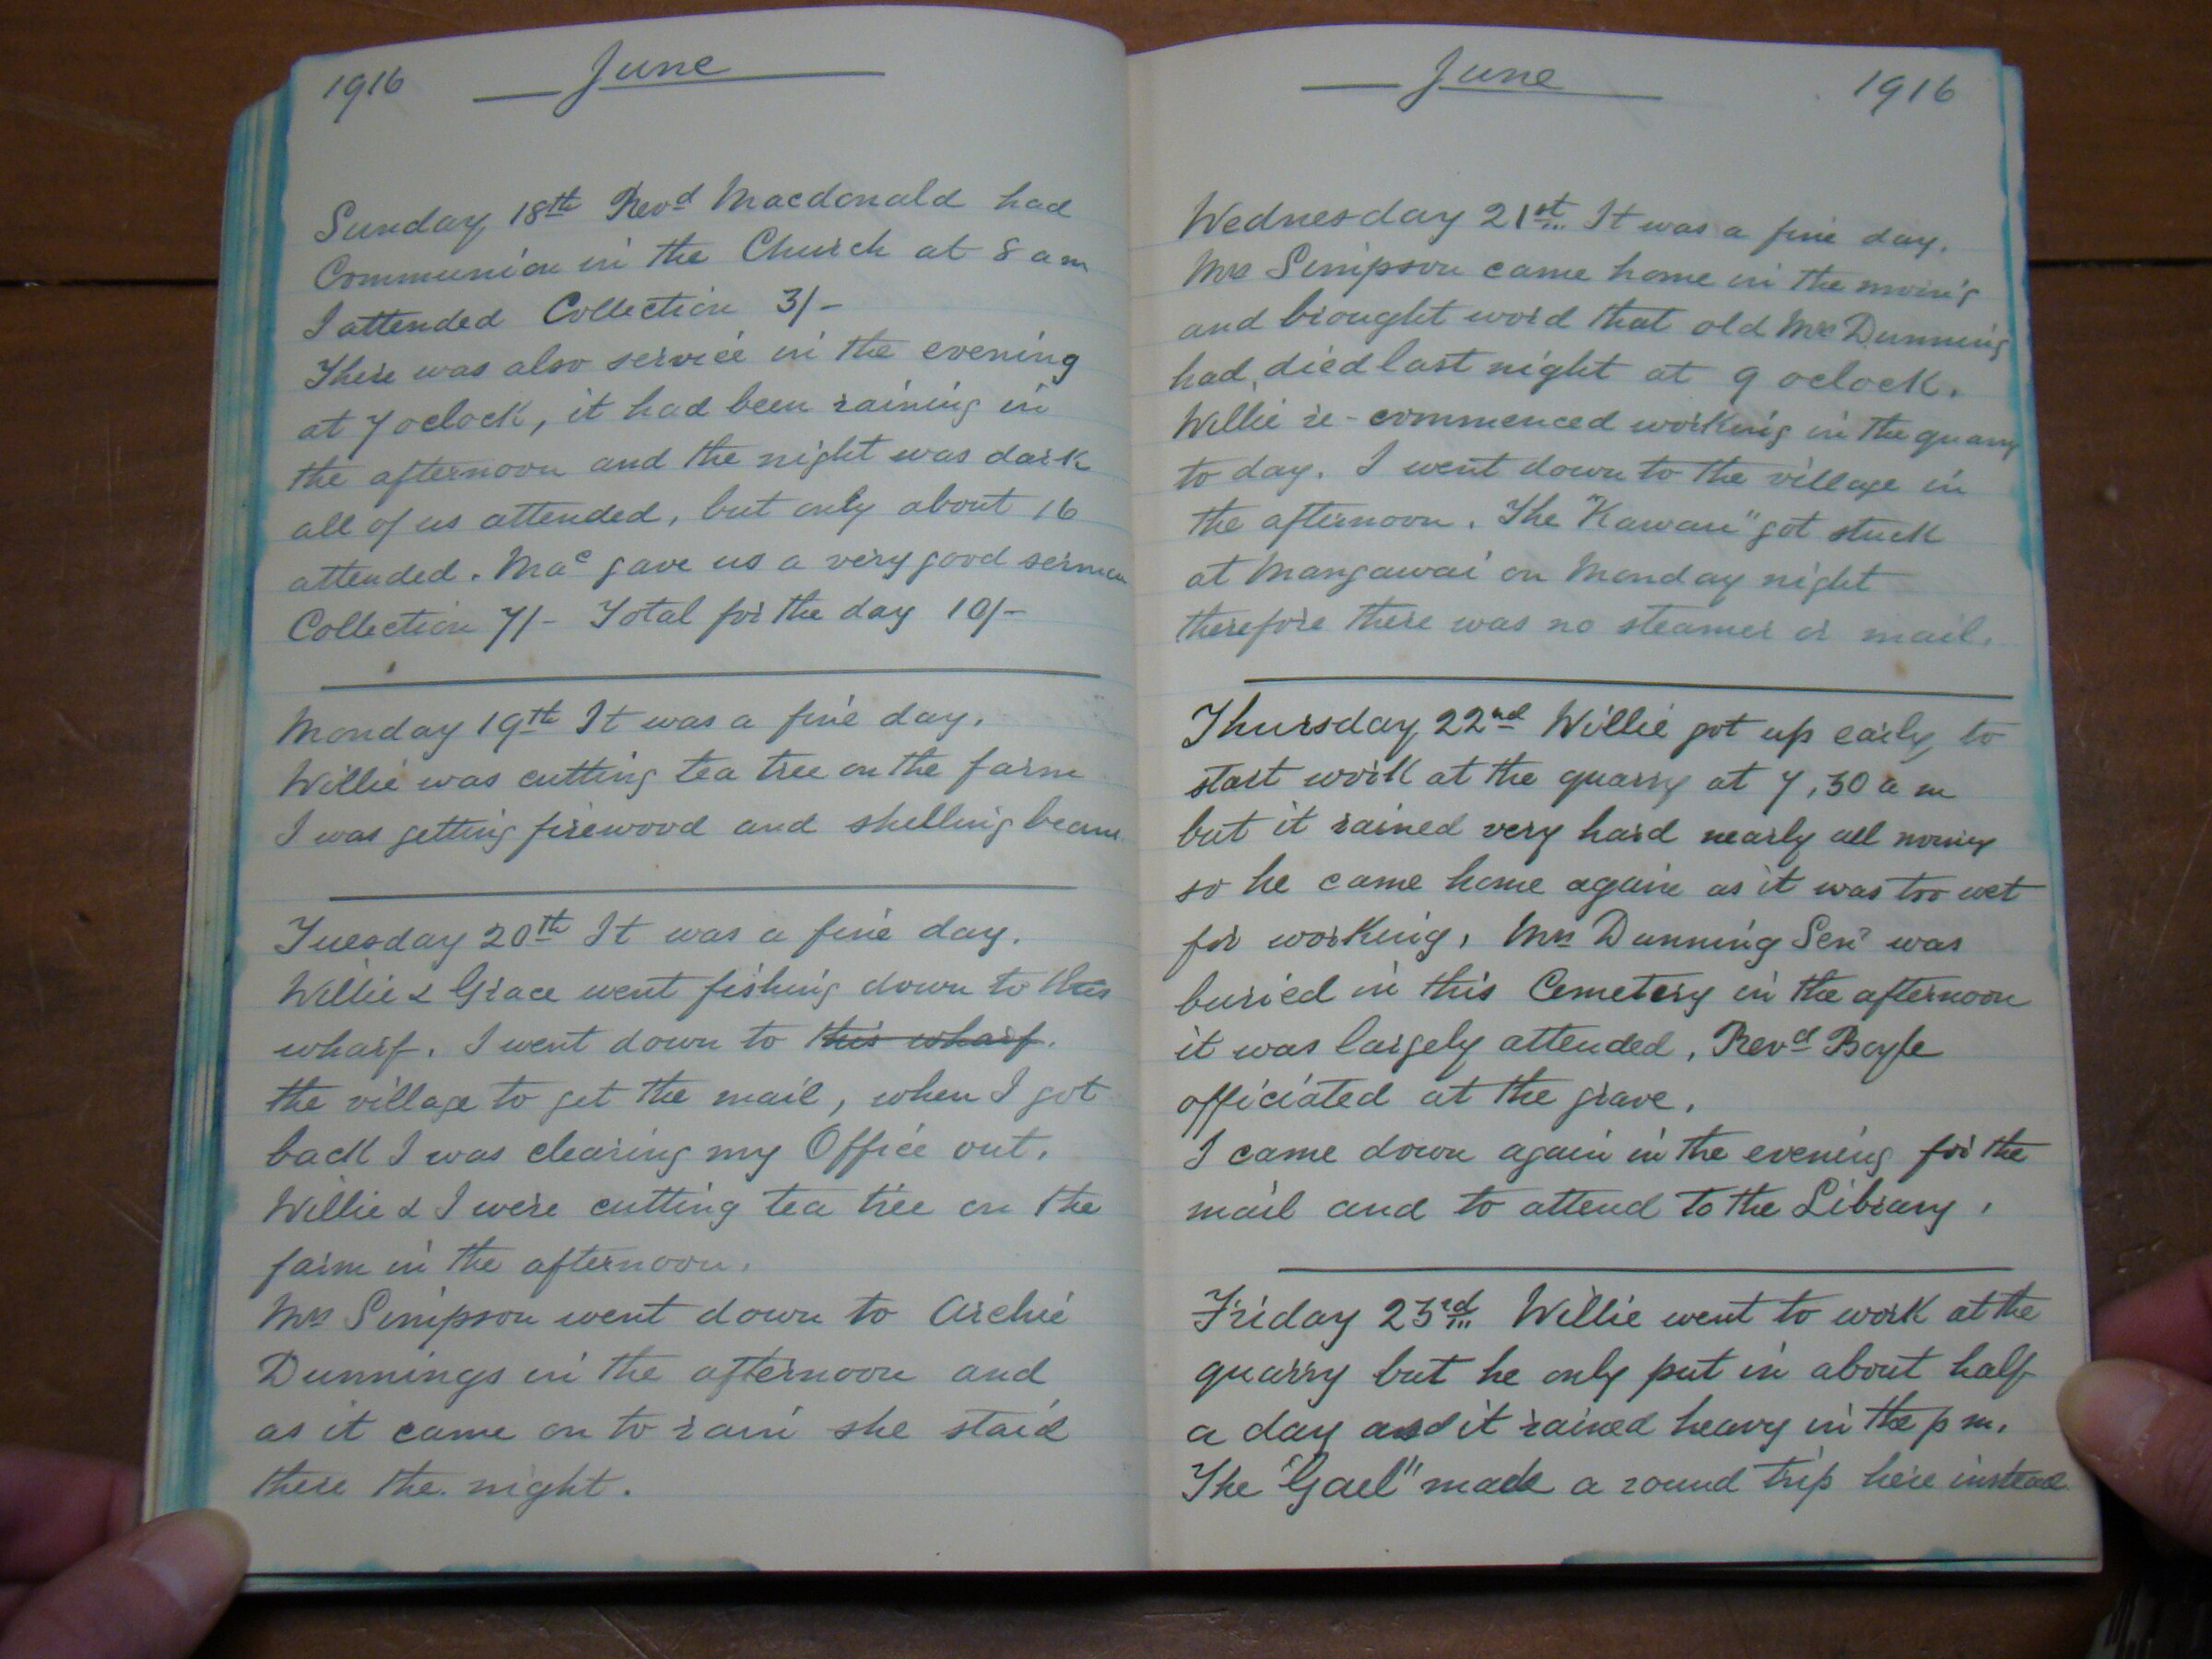 1916 June
Sunday 18th Revd Macdonald had
Communion in the Church at 8 am
I attended Collection 3/-
There was also service in the evening
at 7 oclock, it had been raining in
the afternoon and the night was dark
all of us attended, but only about 16
attended. Mac gave us a very good sermon
Collection 7/- Total for the day 10/-
Monday 19th It was a fine day.
Willie was cutting tea tree on the farm
I was getting firewood and shelling beans
Tuesday 20th It was a fine day.
Willie & Grace went fishing down to this
wharf. I went down to this wharf.
the village to get the mail, when I got
back I was clearing my Office out.
Willie & I were cutting tea tree on the
farm in the afternoon.
Mrs Simpson went down to Archie
Dunnings in the afternoon and
as it came on to rain she staid
there the night.
June 1916
Wednesday 21st It was a fine day.
Mrs Simpson came home in the morn'g
and brought word that old Mrs Dunning
had died last night at 9 oclock.
Willie re-commenced working in the quarry
to day. I went down to the village in
the afternoon. The "Kawau" got stuck
at Mangawai on Monday night
therefore there was no steamer or mail.
Thursday 22nd Willie got up early to
start work at the quarry at 7,30 a m
but it rained very hard nearly all morning
so he came home again as it was too wet
for working, Mrs Dunning Senr was
buried in this Cemetery in the afternoon
it was largely attended, Revd Boyle
officiated at the grave.
I came down again in the evening for the
mail and to attend to the Library.
Friday 23rd Willie went to work at the
quarry but he only put in about half
a day and it rained heavy in the p m.
The "Gael" made a round trip here instead